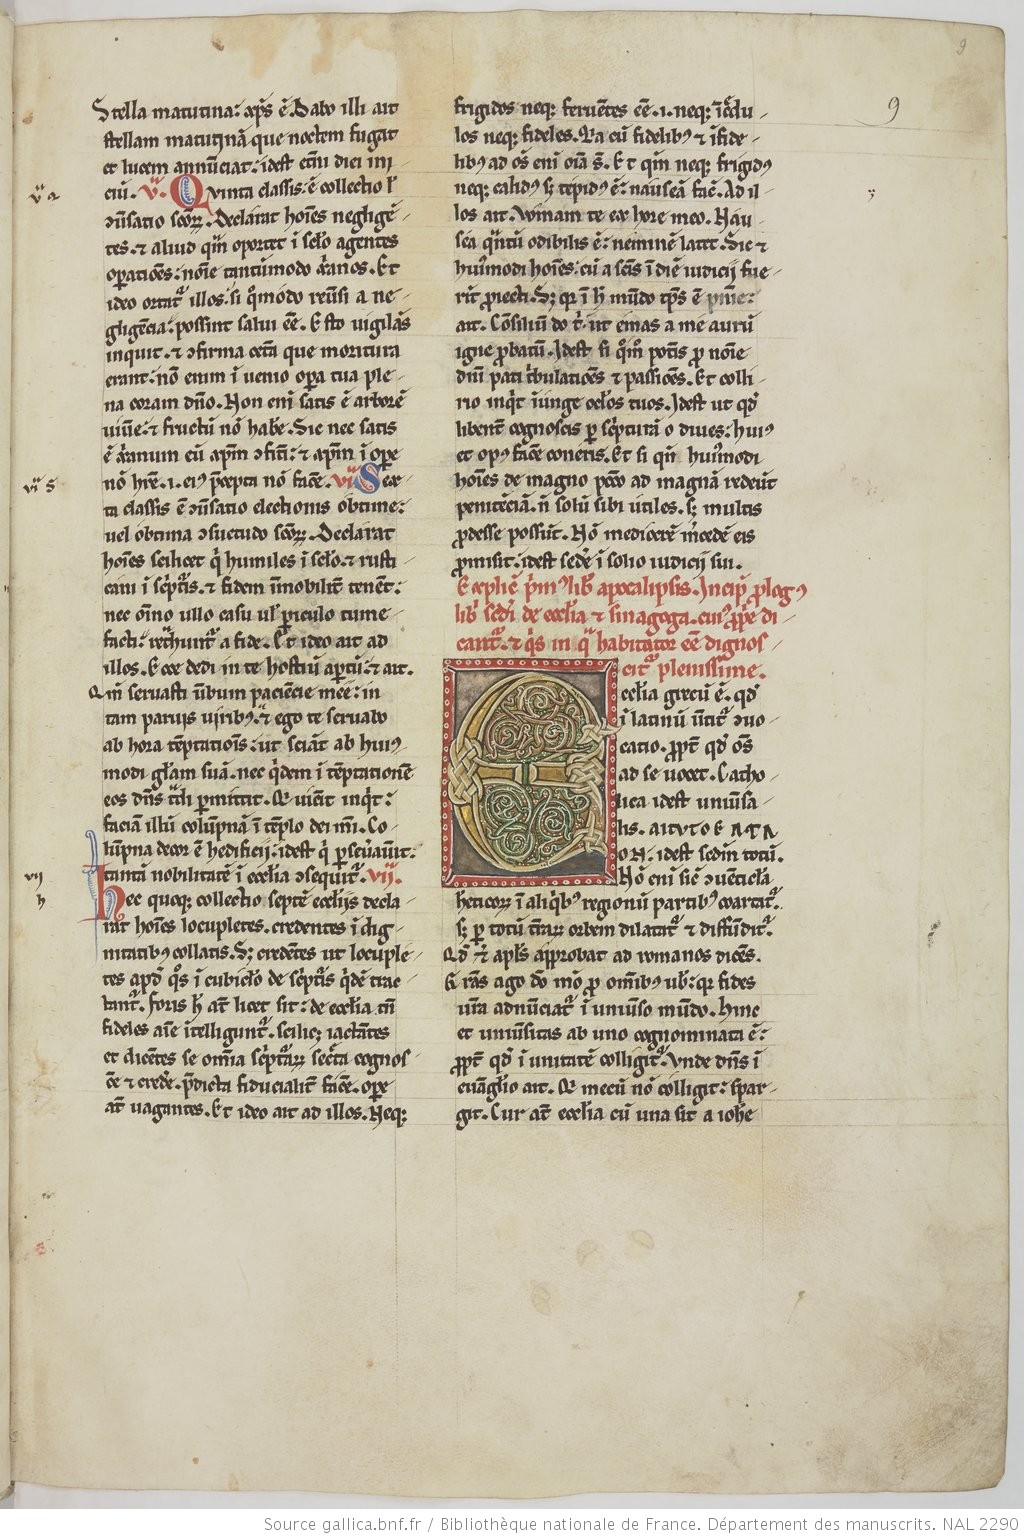 Stella matutina: ap̄s ē. Dabo illi ait
stellam matutinā que noctem fugat
et lucem annūciat: idest etn̄i diei ini-
ciū. v. Quinta classis: ē collectio ł
ꝯũsatio scōꝝ. Declarat hoīes neghgē-
tes. ⁊ aliud qm̄ oportet ī sclo agentes
opatiōes: noīe tantūmodo xr̄anos. Et
ideo ortat᷑ illos: si qͦmodo reūsi a ne-
gligēcia: possint salui eē. Esto vigilās
inquit. ⁊ ꝯfirma cet̄a que moritura
erant: nō enim īuenio opa tua ple-
na coram dn̄o. Non eni satis ē arborē
uiūe: ⁊ fructū nō habe. Sic nec satis
ē xr̄anum eū ap̄m ꝯfiti: ⁊ ap̄m ī ope
nō hr̄e. i. eiꝰ p̄cepta nō facē. vi. Sex-
ta classis ē ꝯũsatio electionis obtime:
uel obtima ꝯsuetudo scōꝝ. Declarat
hoīes scilicet q̇ humiles ī sclo. ⁊ rusti
cani ī sc̄pt̄is. ⁊ fidem īmobilit̄ tenēt:
nec oīno ullo casu uł piculo time-
facti: ret̄hunt᷑ a fide. Et ideo ait ad
illos. Ecce dedi in te hostiū aptū: ⁊ ait.
Qm̄ seruasti ūbum paciēcie mee: in
tam paruis uiribꝰ. ⁊ ego te seruabo
ab hora tēptatiōis: ut sciāt ab huiꝰ-
modi gl̄am suā. nec q̇dem ī tēptationē
eos dn̄s t̄hi pmittit. Q uicīt inqt̄:
faciam illū colūpnā ī tēplo dei mī. Co-
lūpna decor ē hedificij: idest q̇ pseũauīt.
tantā nobilitatē ī eccłia ꝯsequit᷑. vij.
Hec quoq; collectio septē eccłijs decla-
rat hoīes locupletes. credentes ī dig-
nitatibꝰ collatis. S; credētes ut locuple-
tes apd̄ qͦs ī cubiclo de sc̄ptis q̇dē trac-
tant᷑. foris h̄ at̄ licet sit: de eccłia tn̄
fideles aīe ītelligunt᷑. scilic; iactātes
et dicētes se omīa sc̄pt̄aꝝ sec̄ta cognos-
cē ⁊ credē. p̄dicta fiducialit̄ facē. ope
at̄ uagantes. Et ideo ait ad illos. Neq;
frigidos neq; feruētes eē. i. neq; īc̄du-
los neq; fideles. Ra eū fidelibꝰ ⁊ īfide-
libꝰ ad os̄ eni oīa s̄. Et qm̄ neq; frigidꝰ
neq; calidꝰ s; tepidꝰ ē: nauseā facē. Ad il-
los ait. Uomam te ex hore meo. Nau-
sea qn̄tū odibilis ē: neminē latet. Sic ⁊
huꝰmodi hoīes: cū a sc̄is ī diē iudicij fue-
rīt piecti. S; qr ī h̄ mūdo tp̄s ē pnīe:
ait. Cōsiliū do t̄. ut emas a me aurū
igne pbatū. Idest si qͦm̄ pot̄is p noīe
dn̄i pati t̄bulatioēs ⁊ passioēs. Et colli-
rio inqt̄ iūnge oclos tuos. Idest ut qd̄
libent̄ cognoscis p sc̄pturā o diues: huiꝰ
et opꝰ facē coneris. Et si qn̄ huꝰmodi
hoīes de magno pccō ad magnā redeūt
penitēciā. n̄ solū sibi utiles. s; multis
pdesse possūt. Nō mediocrē m̄cedē eis
pmisit: idest sedē ī solio iudicij sui.
Explic̄ p̄mꝰ lib̄ apocalipsis. Incip̄ plogꝰ
lib̄ sc̄di de eccłia ⁊ sinagoga. cuiꝰ ppe di-
cant᷑. ⁊ qͥs in qͣ habitator eē dignos-
cit᷑ plenissime.
Eccłia grecū ē. qd̄
ī latinū ūtit᷑ ꝯuo-
catio. ppt̄ qd̄ os̄
ad se uocet. Catho-
lica idest uniūsa-
lis.
idest sedm̄ totū.
Nō eni sic̄ ꝯuēticla
heticoꝝ ī aliqͥbꝰ regionū partibꝰ coartat᷑.
s; p totū t̄raꝝ orbem dilatat᷑ ⁊ diffūdit᷑.
Qd̄ ⁊ apls approbat ad romanos dicēs.
Gr̄as ago dō mō p omībꝰ ub̄: qr fides
ur̄a adnūciat᷑ ī uniūso mūdo. hinc
et uniūsitas ab uno cognominata ē:
ppt̄ qd̄ ī unitatē colligit᷑. Unde dn̄s ī
euāglio ait. Q mecū nō colligit: spar-
git. Cur at̄ eccłia cū una sit a iohe
9
v a
vi S
vij
h
9
Source gallica.bnf.fr / Bibliothèque nationale de France. Département des manuscrits. NAL 2290